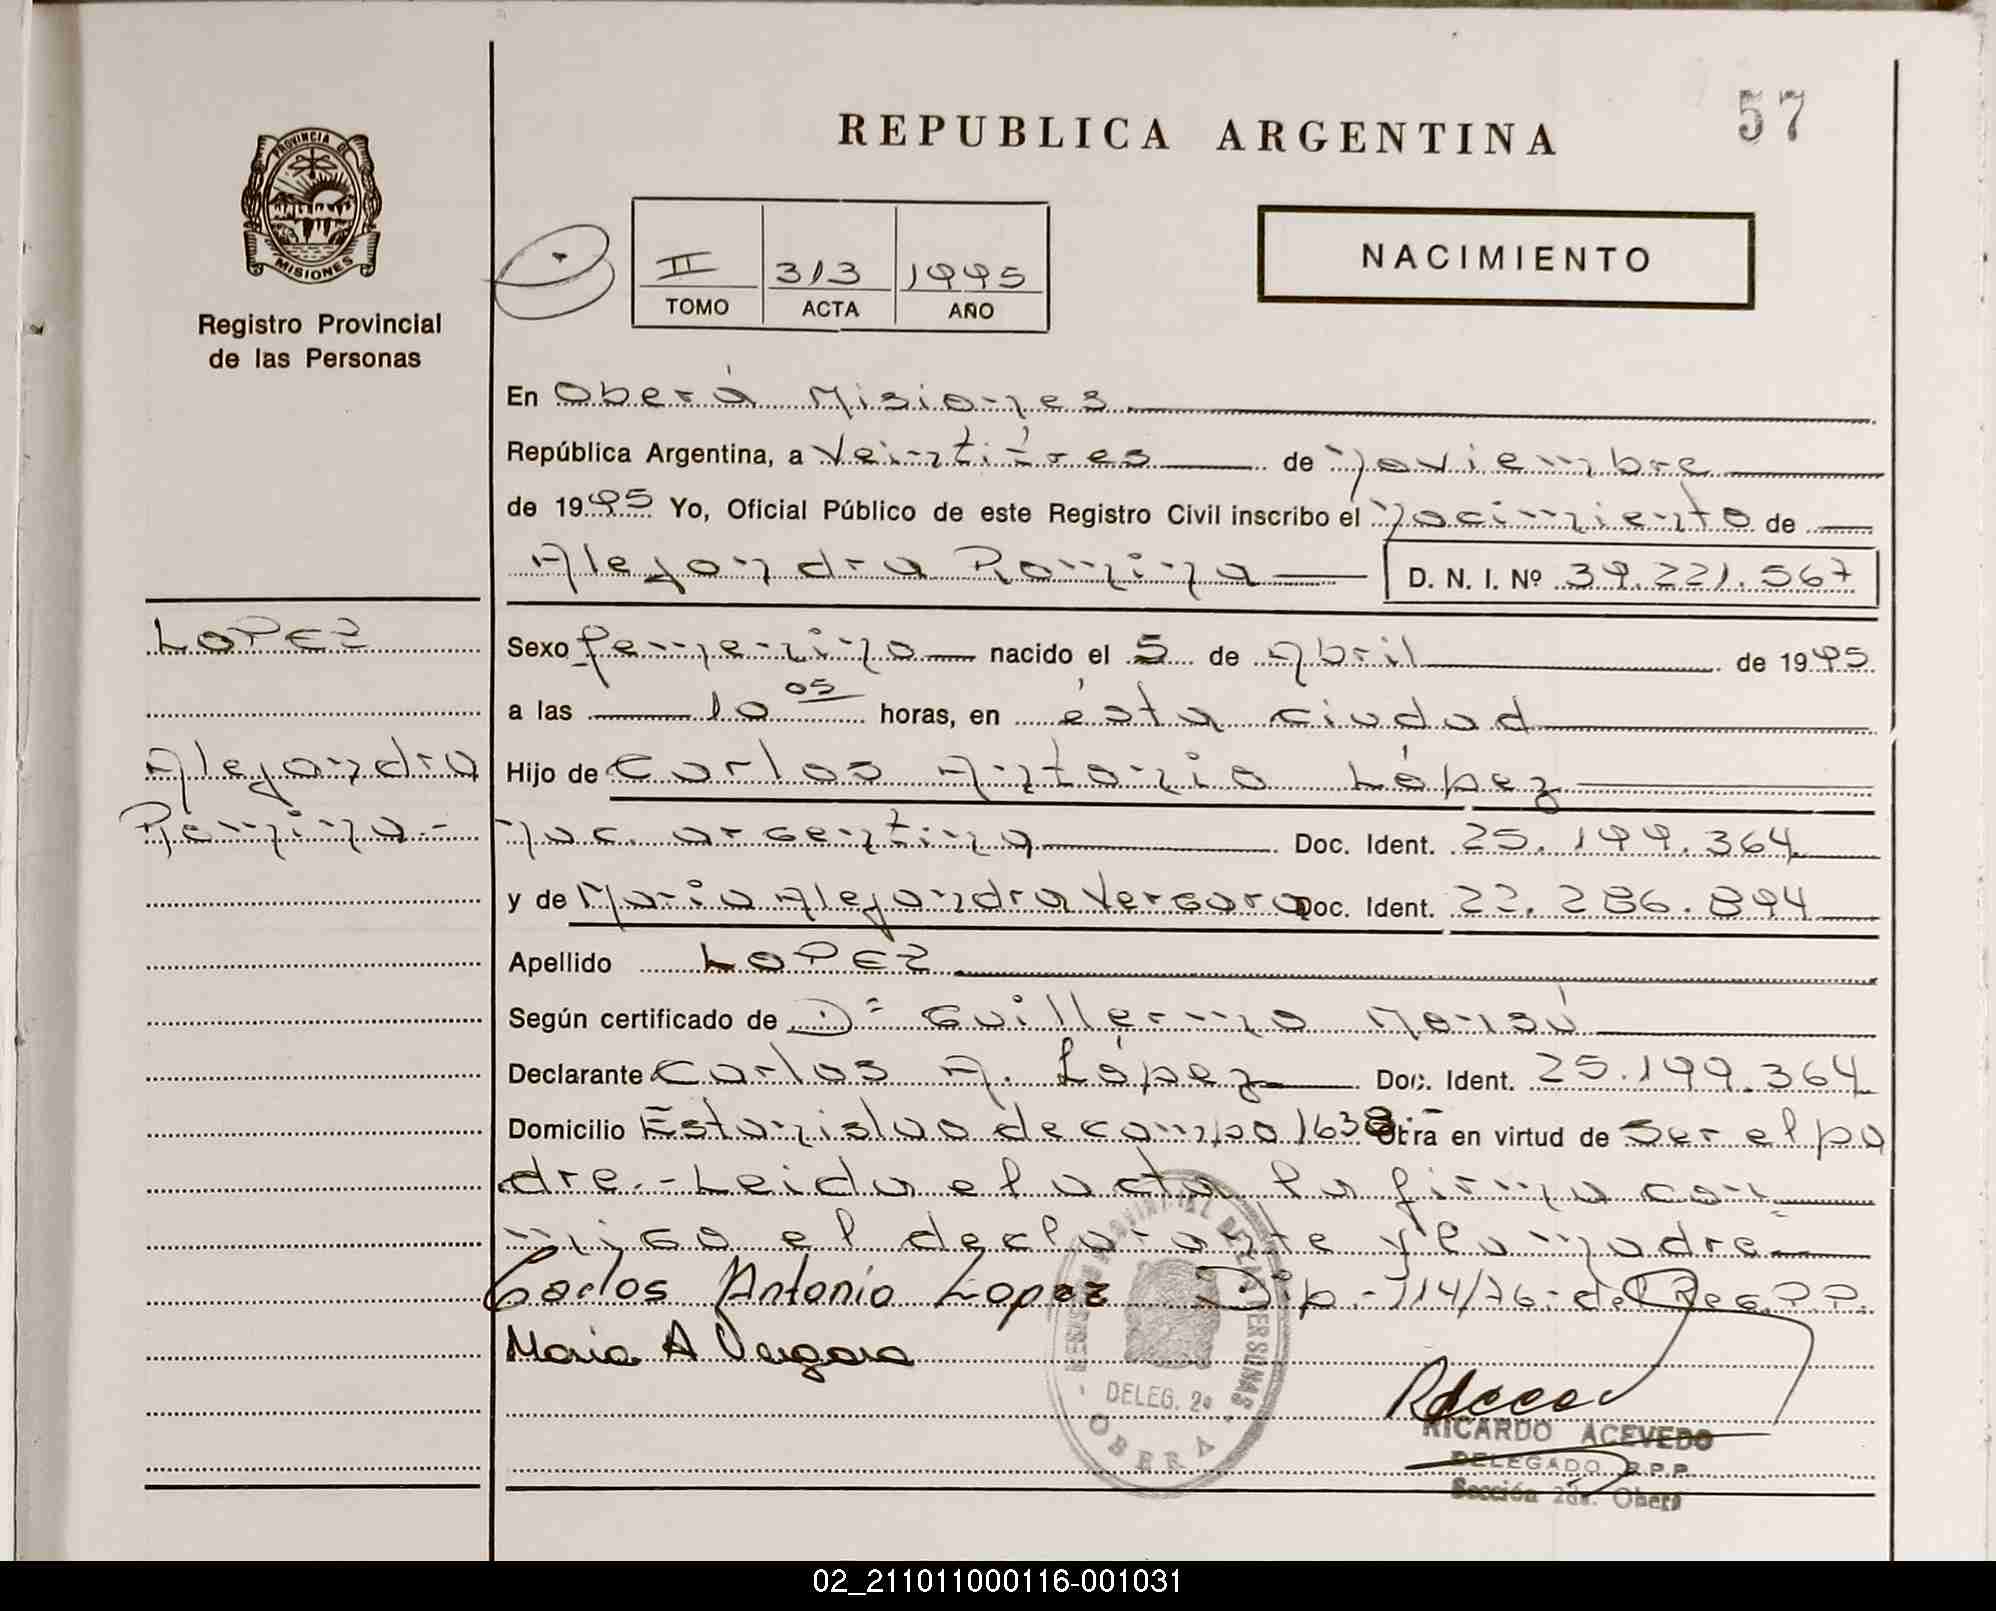 57
REPUBLICA ARGENTINA
PROVINCIA DE
MISIONES
Registro Provincial
de las Personas
II 313 1995
TOMO ACTA AÑO
NACIMIENTO
En Oberá Misiones
República Argentina, a Veintitrés de noviembre
de 1995 Yo, Oficial Público de este Registro Civil inscribo el nacimiento de
Alejandra Romina D. N. I. Nº 39.221.567
LOPEZ
Sexo femenino nacido el 5 de Abril de 1995
a las 10 05 horas, en ésta ciudad
Alejandra
Hijo de Carlos Antonio López
Romina.-
nac. argentina Doc. Ident. 25.199.364
y de Maria Alejandra Vergara Doc. Ident. 22.286.894
Apellido LOPEZ
Según certificado de Dr Guillermo
Declarante Carlos A. López Doc. Ident. 25.199.364
Domicilio Estanislao de campo 1638 Obrá en virtud de Ser el pa
dre.- Leida el acta la firma con
migo el declarante y la madre
Carlos Antonio Lopez Dip.-114/76- del Reg.P.P.
Maria A Vergara
PROVINCIAL DE LAS PERSONAS
DELEG. 2a
OBERA
RICARDO ACEVEDO
DELEGADO R.P.P
Sección 2da. Oberá
02_211011000116-001031